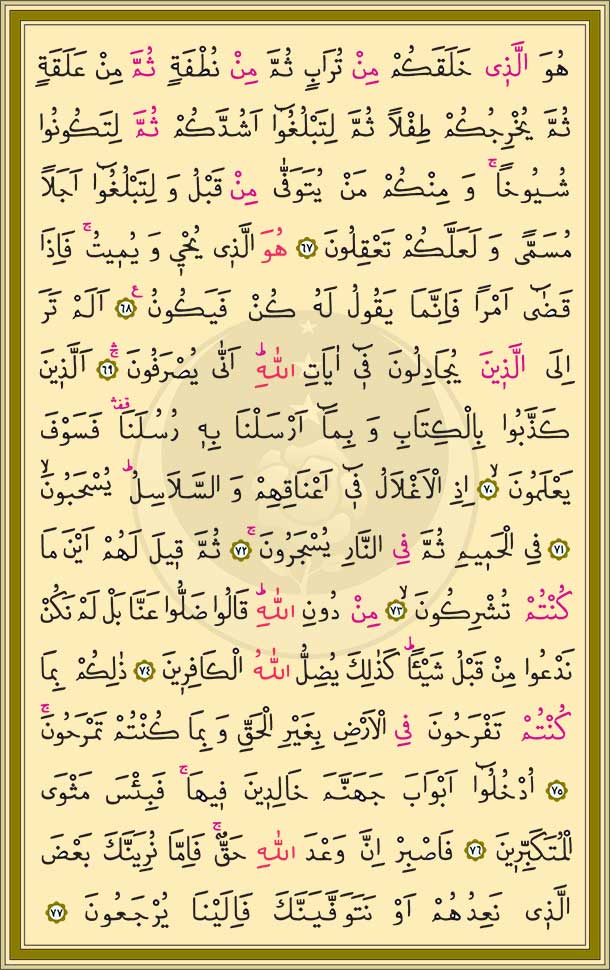 هُوَ الَّذ۪ى خَلَقَكُمْ مِنْ تُرَابٍ ثُمَّ مِنْ نُطْفَةٍ ثُمَّ مِنْ عَلَقَةٍ
ثُمَّ يُخْرِجُكُمْ طِفْلاً ثُمَّ لِتَبْلُغُٓوا اَشُدَّكُمْ ثُمَّ لِتَكُونُوا
شُيُوخاًۚ وَ مِنْكُمْ مَنْ يُتَوَفّٰى مِنْ قَبْلُ وَ لِتَبْلُغُٓوا اَجَلاً
مُسَمًّى وَ لَعَلَّكُمْ تَعْقِلُونَ ﴿٦٧﴾ هُوَ الَّذ۪ى يُحْي۪ وَ يُم۪يتُۚ فَاِذَا
قَضٰٓى اَمْرًا فَاِنَّمَا يَقُولُ لَهُ كُنْ فَيَكُونُ ﴿٦٨﴾ ع اَلَمْ تَرَ
اِلَى الَّذ۪ينَ يُجَادِلُونَ ف۪ٓى اٰيَاتِ اللّٰهِۜ اَنّٰى يُصْرَفُونَ ﴿٦٩﴾ اَلَّذ۪ينَ
كَذَّبُوا بِالْكِتَابِ وَ بِمَٓا اَرْسَلْنَا بِه۪ رُسُلَنَا فَسَوْفَ
يَعْلَمُونَۙ ﴿٧٠﴾ اِذِ الْاَغْلَالُ ف۪ٓى اَعْنَاقِهِمْ وَ السَّلَاسِلُۜ يُسْحَبُونَۙ
﴿٧١﴾ فِي الْحَم۪يمِ ثُمَّ فِي النَّارِ يُسْجَرُونَۚ ﴿٧٢﴾ ثُمَّ ق۪يلَ لَهُمْ اَيْنَ مَا
كُنْتُمْ تُشْرِكُونَۙ ﴿٧٣﴾ مِنْ دُونِ اللّٰهِۜ قَالُوا ضَلُّوا عَنَّا بَلْ لَمْ نَكُنْ
نَدْعُوا مِنْ قَبْلُ شَيْـًٔاۜ كَذٰلِكَ يُضِلُّ اللّٰهُ الْكَافِر۪ينَ ﴿٧٤﴾ ذٰلِكُمْ بِمَا
كُنْتُمْ تَفْرَحُونَ فِي الْاَرْضِ بِغَيْرِ الْحَقِّ وَ بِمَا كُنْتُمْ تَمْرَحُونَۚ
﴿٧٥﴾ اُدْخُلُٓوا اَبْوَابَ جَهَنَّمَ خَالِد۪ينَ ف۪يهَاۚ فَبِئْسَ مَثْوَى
الْمُتَكَبِّر۪ينَ ﴿٧٦﴾ فَاصْبِرْ اِنَّ وَعْدَ اللّٰهِ حَقٌّۚ فَاِمَّا نُرِيَنَّكَ بَعْضَ
الَّذ۪ى نَعِدُهُمْ اَوْ نَتَوَفَّيَنَّكَ فَاِلَيْنَا يُرْجَعُونَ ﴿٧٧﴾